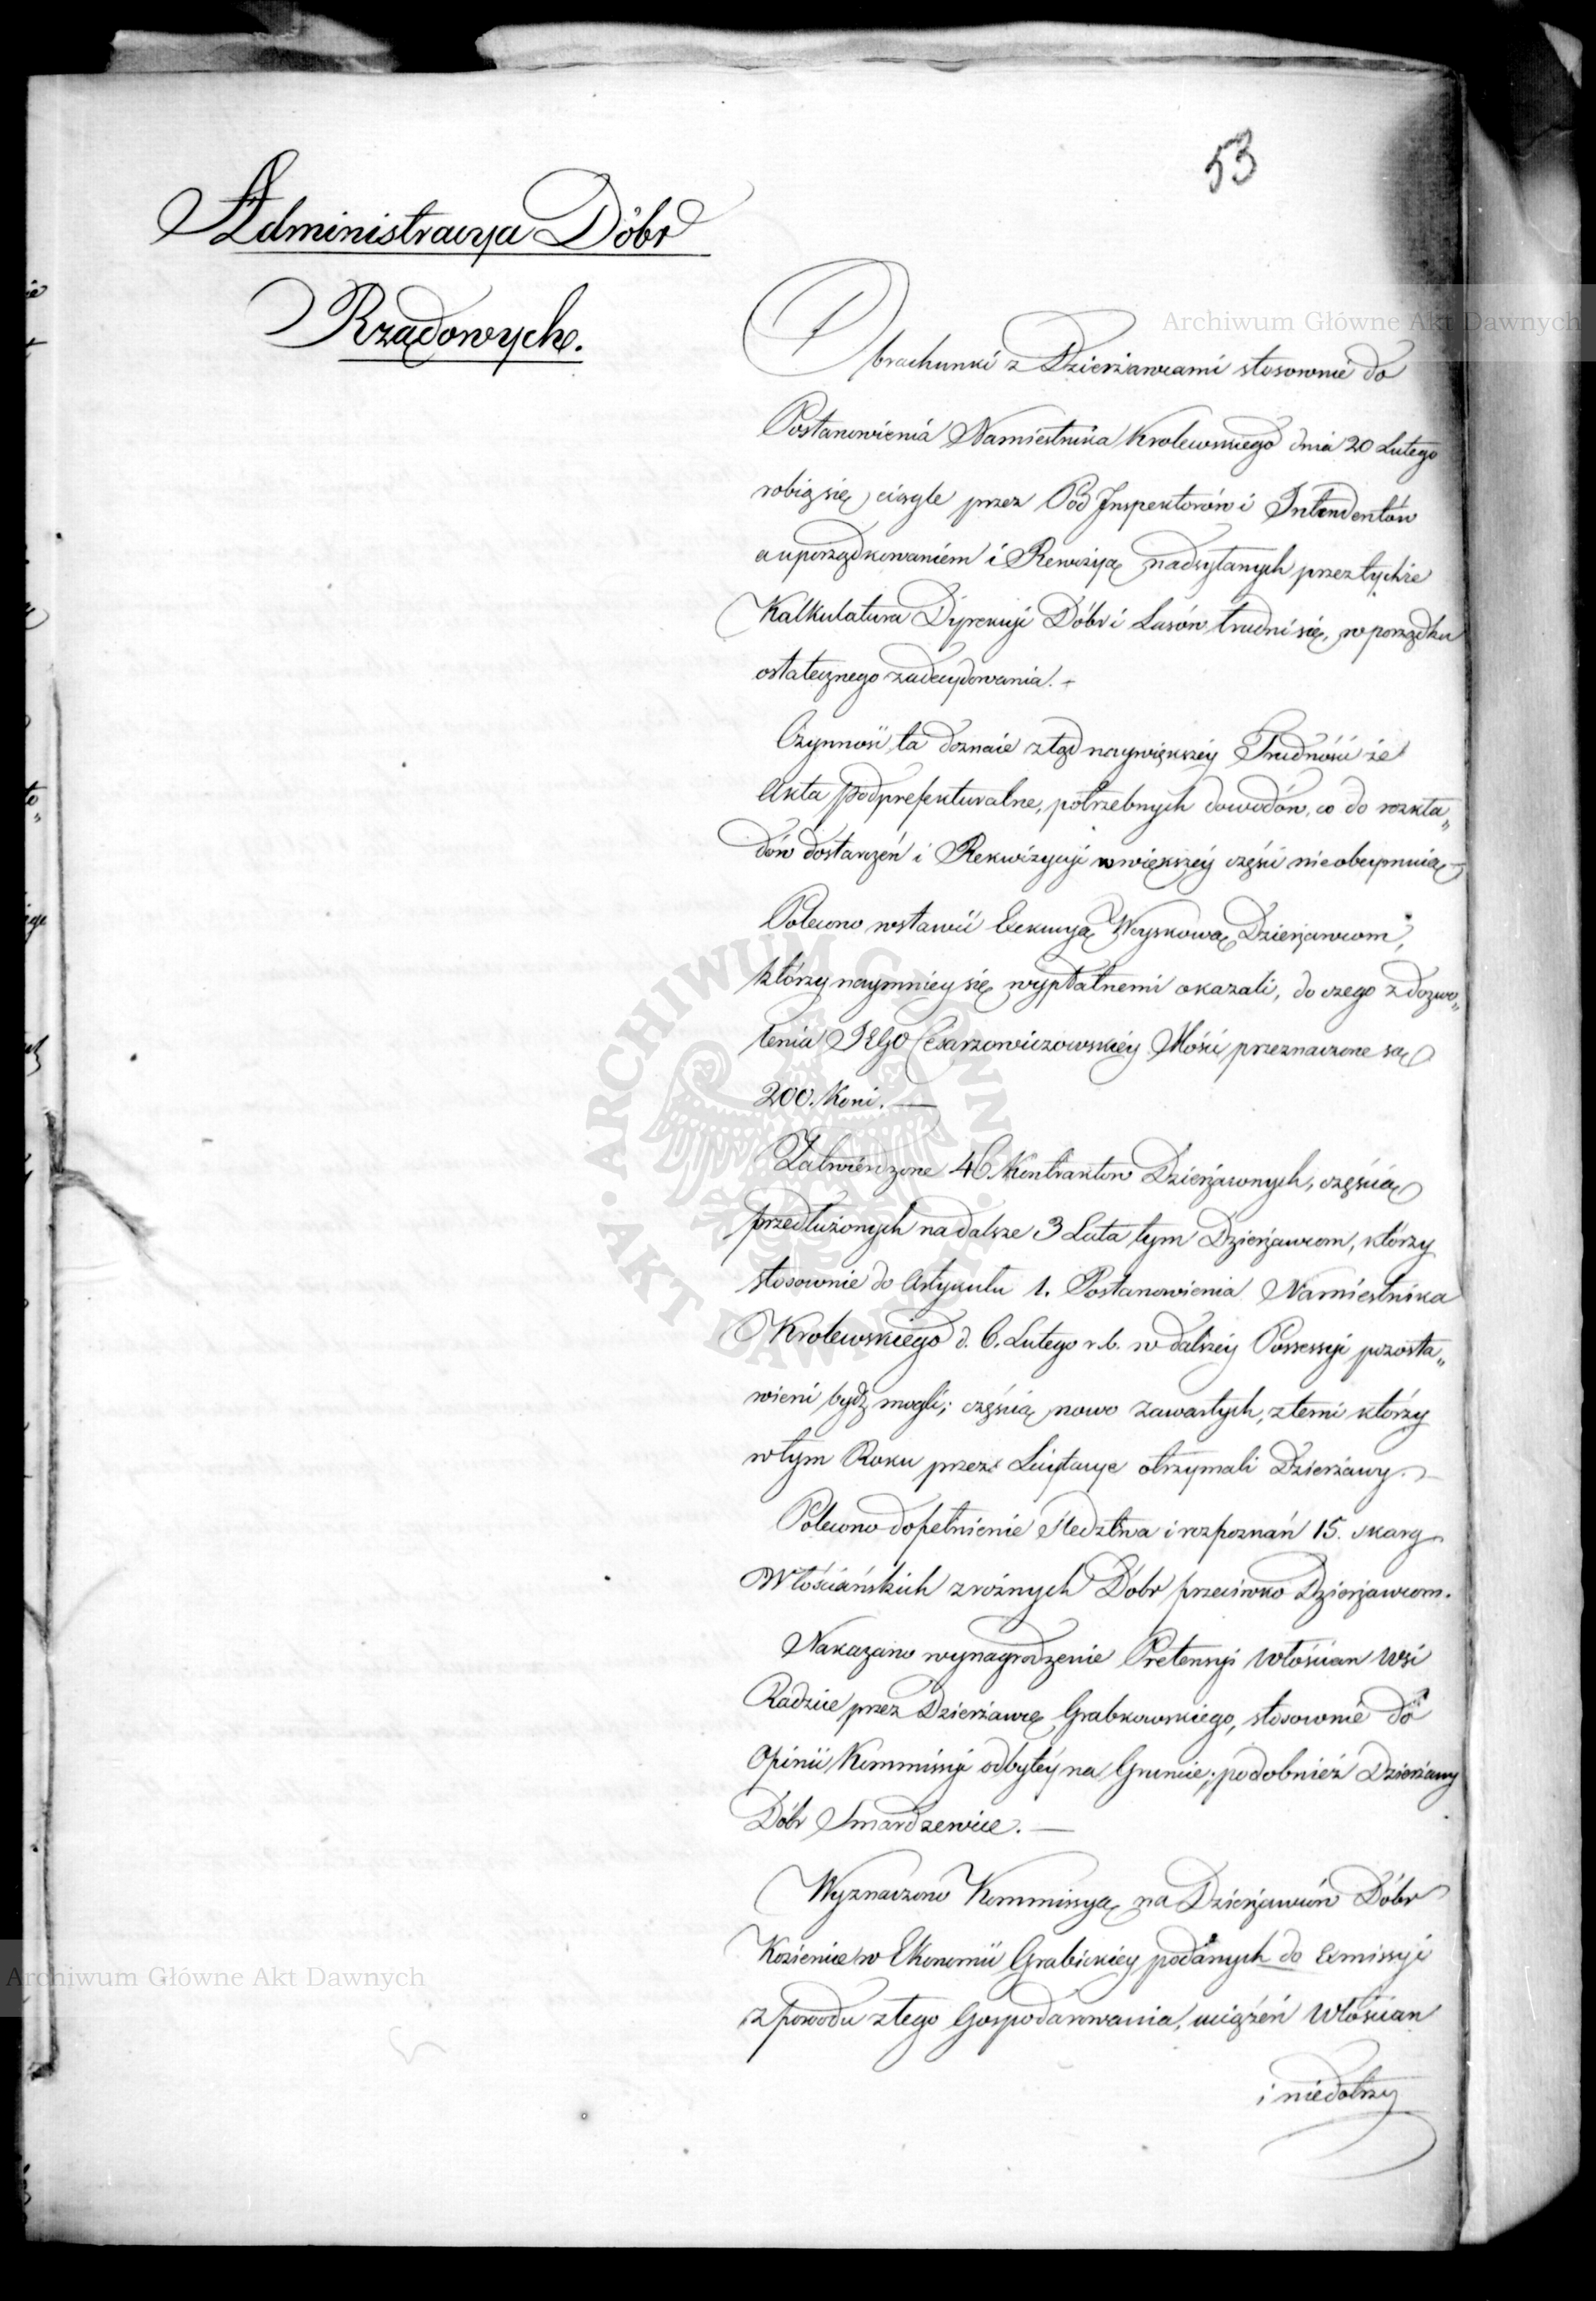 53
Administracya Dóbr
Rządowych.
Obrachunki z Dzierżawcami stosownie do
Postanowienia Namiestnika Krolewskiego dnia 20 Lutego
robią się ciągle przez Pod Inspektorów i Intendentów
a uporządkowaniem i Rewizyą nadsyłanych przez tychże
Kalkulatura Dyrekcyi Dóbr i Lasów trudni się, w porządku
ostatecznego zadecydowania. -
Czynność ta doznaie ztąd naywiększey Trudności że
Akta Podprefekturalne, potrzebnych dowodów, co do rozkła„
dów dostarczeń i Rekwizycyi w większey części nie obeymuią
Polecono wstawić Exekucyą Woyskową Dzierżawcom,
którzy naymniey się wypłatnemi okazali, do czego z dozwo„
lenia JEGO Cesarzowiczowskiéy Mości przeznaczone są
200. Koni. —
Zatwierdzone 46. Kontraktów Dzierżawnych, częścią
przedłużonych na dalsze 3 Lata tym Dzierżawcom, którzy
stosownie do Artykułu 1. Postanowienia Namiestnika
Krolewskiego d. 6. Lutego r. b. w dalszey Possessyi pozosta„
wieni bydź mogli; częścią nowo zawartych, z temi którzy
w tym Roku przez Licytacye otrzymali Dzierżawy. -
Polecono dopełnienie śledztwa i rozpoznań 15. skarg
Włościańskich z różnych Dóbr przeciwko Dzierżawcom.
Nakazano wynagrodzenie Pretensyi Włościan Wsi
Radzice przez Dzierżawcę Grabkowskiego, stosownie do
Opinii Kommissyi odbytéy na Gruncie; podobnież Dzierżawcy
Dóbr Smardzewice. —
Wyznaczono Kommissyą na Dzierżawców Dóbr
Kozienice w Ekonomii Grabickiey podanych do Exmissyi
z powodu złego Gospodarowania, uciążeń Włościan
i niedotrzy
Archiwum Główne Akt Dawnych
ARCHIWUM GŁÓWNE AKT DAWNYCH
Archiwum Główne Akt Dawnych